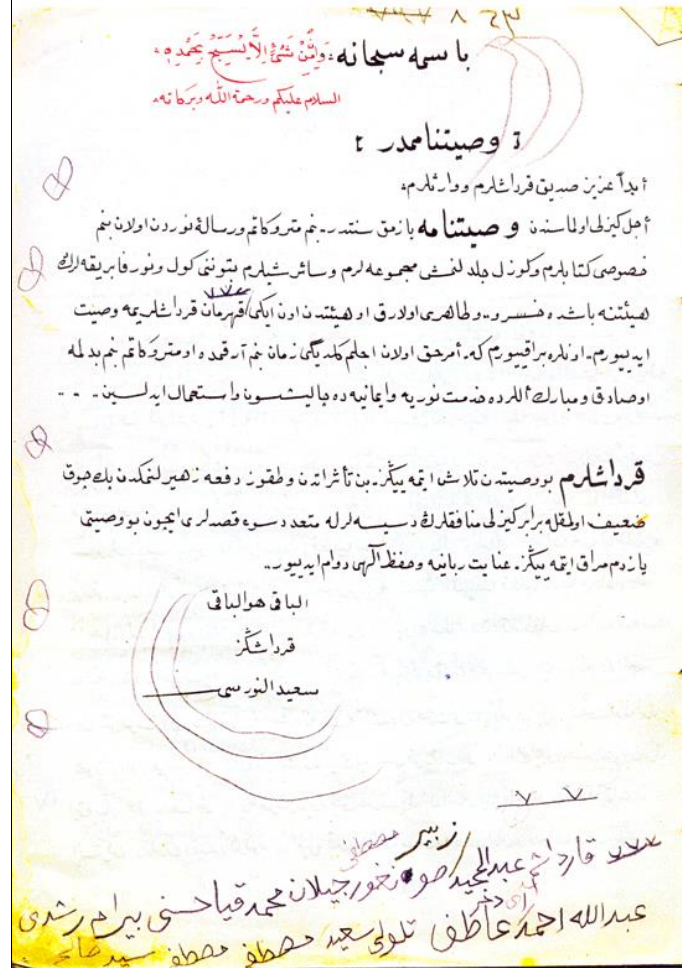 باسمه سبحانه وَاِنْ مِنْ شَیْءٍ اِلَّا یُسَبِّحُ بِحَمْدِهِ
السلام علیکم ورحمة الله وبرکاته
وصیتنامه‌مدر
عزیز صدیق قرداشلرم ووارثلرم
أجل کیزلی اولماسندن وصیتنامه یازمق سنتدر. بنم متروکاتم ورسالهٔ نوردن اولان بنم
خصوصی کتابلرم وکوزل جلدلنمش مجموعه‌لرم وسائر شیلرم بتوننی کول ونور فابریقه‌لرڭ
هیئتنه باشده خسرو وطاهری اولارق او هیئتدن اون ایکی قهرمان قرداشلریمه وصیت
ایدییورم. اونلره براقییورم که. أمرحق اولان اجلم کلدیگی زمان بنم آرقمده او متروکاتم بنم بدلمه
او صادق ومبارك أللرده خدمت نوریه وایمانیه ده چالیشسون واستعمال ایدلسین
قرداشلرم بو وصیتدن تلاش ایتمه ییڭز. بن تأثراتدن وطقوز دفعه زهیرلنمکدن پك چوق
ضعیف اولمقله برابر کیزلی منافقلرڭ دسیسه لرله متعدد سوء قصدلری ایچون بو وصیتی
یازدم مراق ایتمه ییڭز. عنایت ربانیه وحفظ آلٓهی دوام ایدییور
الباقی هوالباقی
قرداشڭز
سعید النورسی
٧ ٧
زبیر مصطفی
٧٧٧ قارداشم عبدالمجید صونغور جیلان محمد قیا حسنی بیرام رشدی
عبدالله احمد عاطف تلولی سعید مصطفی مصطفی سید صالح